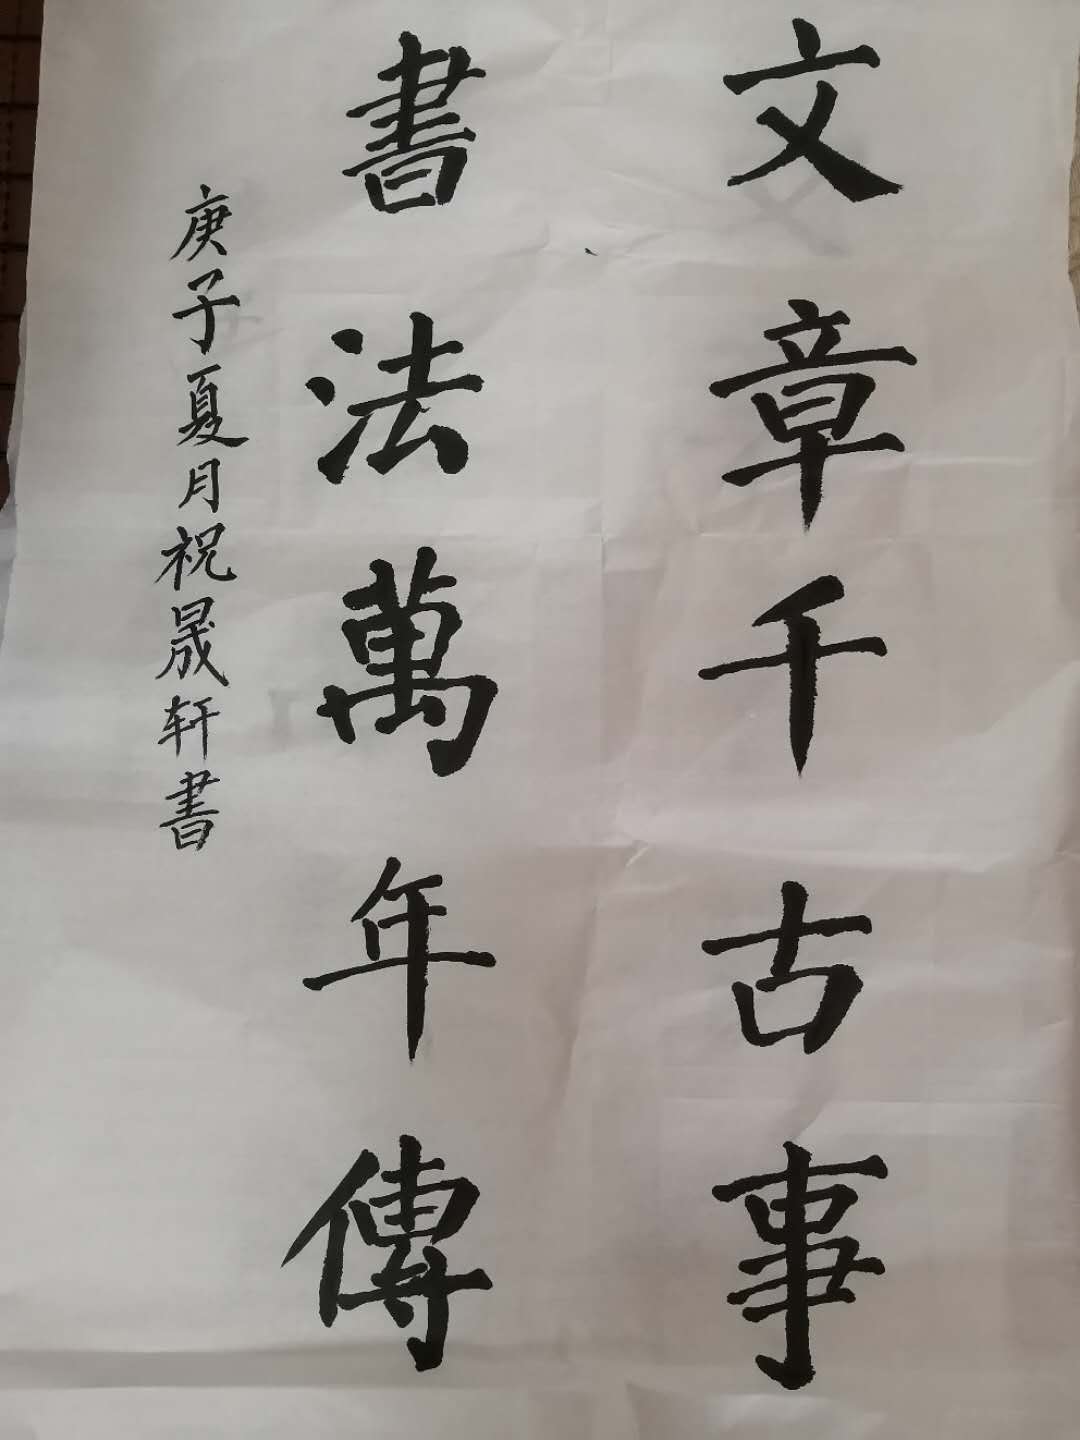 文章千古事
書法萬年傳
庚子夏月祝晟轩書